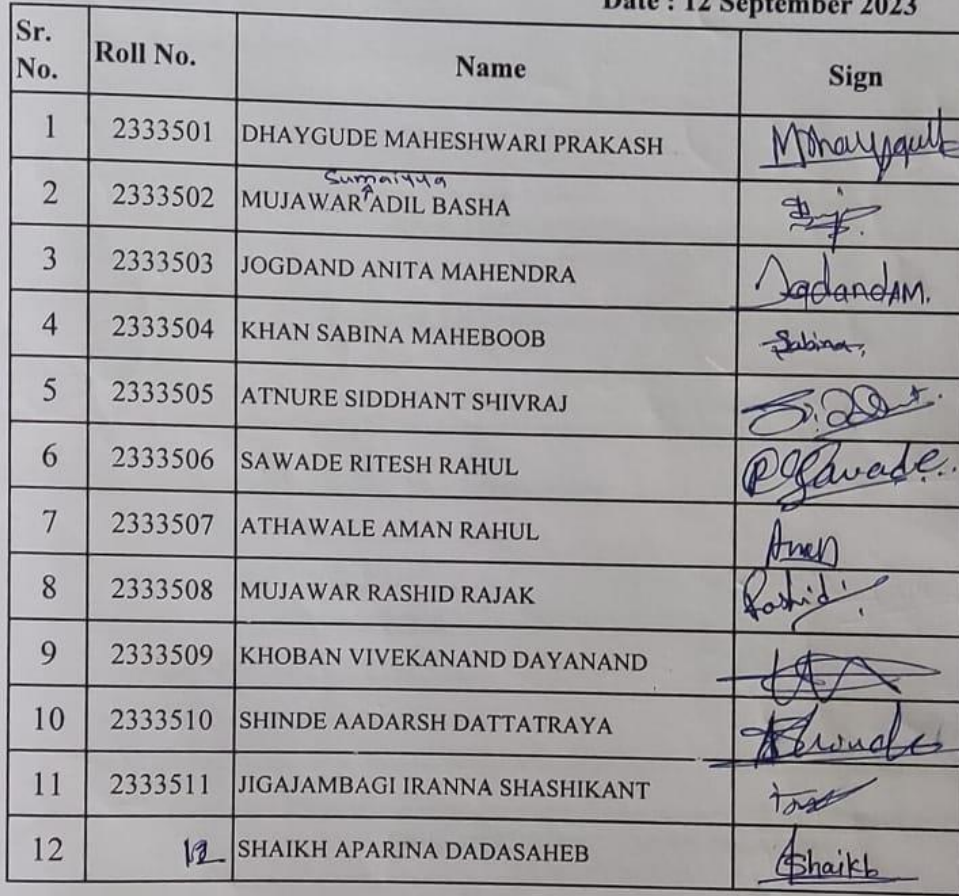 Date : 12 September 2023
Sr. No. Roll No. Name Sign
1 2333501 DHAYGUDE MAHESHWARI PRAKASH
Sumaiyya
2 2333502 MUJAWAR ADIL BASHA
3 2333503 JOGDAND ANITA MAHENDRA JogdandAM.
4 2333504 KHAN SABINA MAHEBOOB Sabina
5 2333505 ATNURE SIDDHANT SHIVRAJ
6 2333506 SAWADE RITESH RAHUL
7 2333507 ATHAWALE AMAN RAHUL Aman
8 2333508 MUJAWAR RASHID RAJAK Rashid
9 2333509 KHOBAN VIVEKANAND DAYANAND
10 2333510 SHINDE AADARSH DATTATRAYA
11 2333511 JIGAJAMBAGI IRANNA SHASHIKANT
12 12 SHAIKH APARINA DADASAHEB Shaikh